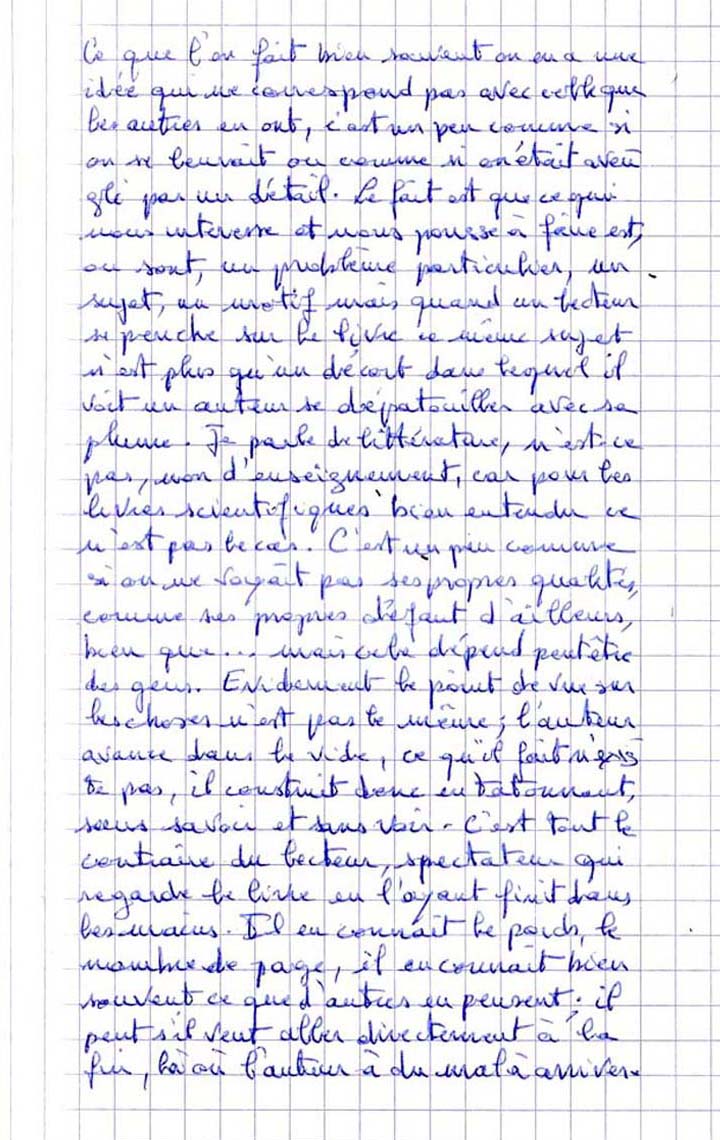 Ce que l'on fait bien souvent on en a une
idée qui ne correspond pas avec celle que
les autres en ont, c'est un peu comme si
on se leurrait ou comme si on était aveu
glé par un détail. Le fait est que ce qui
nous interesse et nous pousse à faire est,
ou sont, un problème particulier, un
sujet, un motif mais quand un lecteur
se penche sur le livre ce même sujet
n'est plus qu'un décort dans lequel il
voit un auteur se dépatouiller avec sa
plume. Je parle de littérature, n'est-ce
pas, non d'enseignement, car pour les
livres scientifiques bien entendu ce
n'est pas le cas. C'est un peu comme
si on ne voyait pas ses propres qualités,
comme ses propres défaut d'ailleurs,
bien que... mais cela dépend peut être
des gens. Evidemment le point de vue sur
les choses n'est pas le même; l'auteur
avance dans le vide, ce qu'il fait n'exis
te pas, il construit donc en tatonnant,
sans savoir et sans voir. C'est tout le
contraire du lecteur, spectateur qui
regarde le livre en l'ayant finit dans
les mains. Il en connait le poids, le
nombre de page, il en connait bien
souvent ce que d'autres en pensent; il
peut s'il veut aller directement à la
fin, là où l'auteur à du mal à arriver.